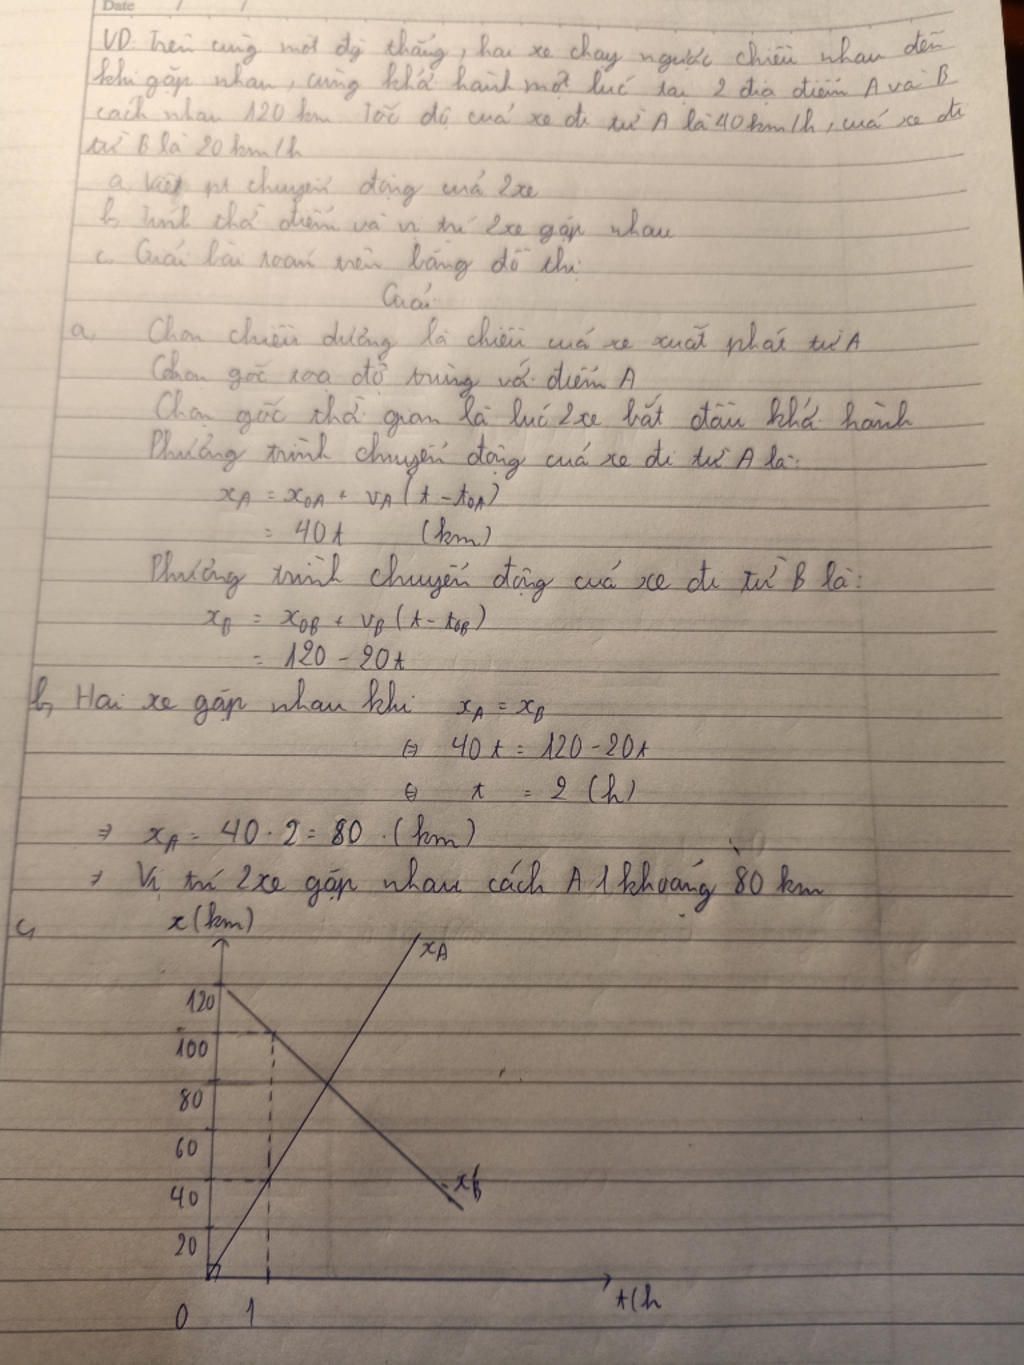 Date / /
VD. Trên cùng một đg thẳng, hai xe chạy ngược chiều nhau đến
khi gặp nhau, cùng khởi hành một lúc tại 2 địa điểm A và B
cách nhau 120 km. Tốc độ của xe đi từ A là 40 km/h, của xe đi
từ B là 20 km/h
a, Viết pt chuyển động của 2 xe
b, Tính thời điểm và vị trí 2 xe gặp nhau
c. Giải bài toán trên bằng đồ thị
Giải
a, Chọn chiều dương là chiều của xe xuất phát từ A
Chọn gốc toạ độ trùng với điểm A
Chọn gốc thời gian là lúc 2 xe bắt đầu khởi hành
Phương trình chuyển động của xe đi từ A là:
x_A = x_0A + v_A (t - t_0A)
= 40t (km)
Phương trình chuyển động của xe đi từ B là:
x_B = x_0B + v_B (t - t_0B)
= 120 - 20t
b, Hai xe gặp nhau khi x_A = x_B
⇔ 40t = 120 - 20t
⇔ t = 2 (h)
⇒ x_A = 40 . 2 = 80 (km)
⇒ Vị trí 2 xe gặp nhau cách A 1 khoảng 80 km
c, x (km)
x_A
120
100
80
60
40
x_B
20
0 1 t(h